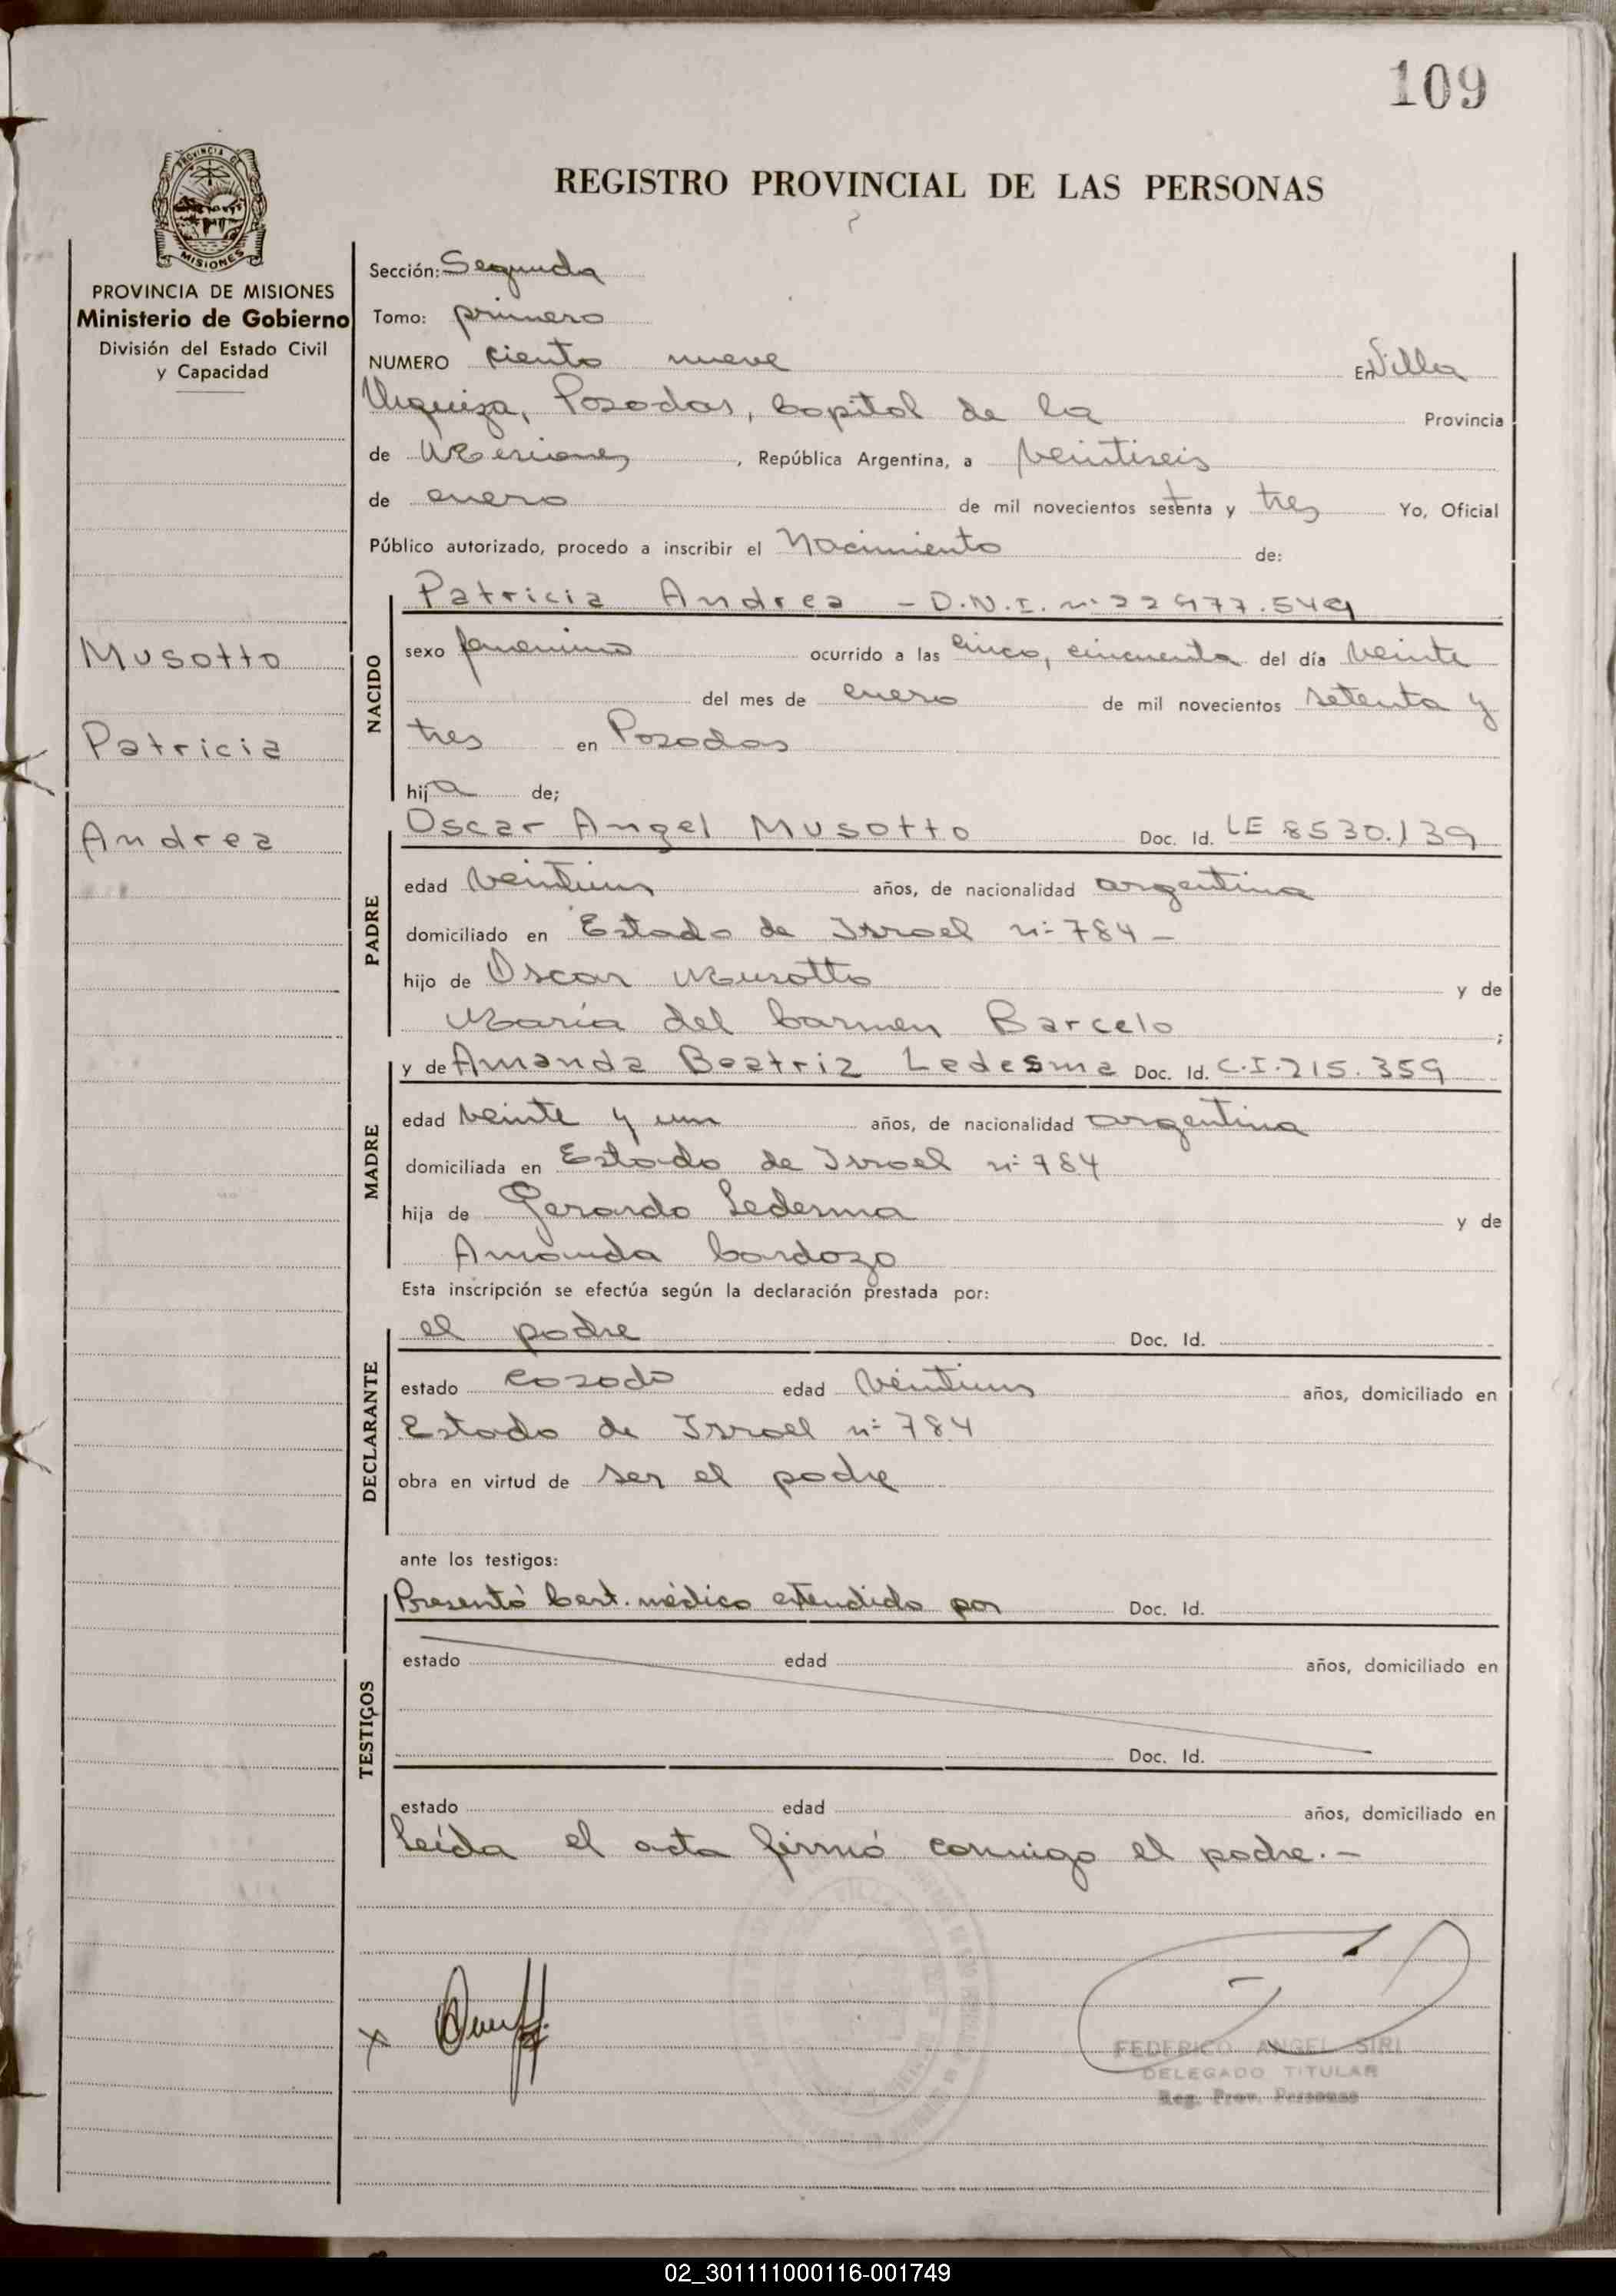 109
REGISTRO PROVINCIAL DE LAS PERSONAS
PROVINCIA DE
MISIONES
PROVINCIA DE MISIONES
Ministerio de Gobierno
División del Estado Civil
y Capacidad
Musotto
Patricia
Andrea
Sección: Segunda
Tomo: primero
NUMERO ciento nueve En Villa
Urquiza, Posadas, Capital de la Provincia
de Misiones, República Argentina, a veintiseis
de enero de mil novecientos setenta y tres Yo, Oficial
Público autorizado, procedo a inscribir el Nacimiento de:
NACIDO
Patricia Andrea - D.N.I. nº 22977.549
sexo femenino ocurrido a las cinco, cincuenta del día veinte
del mes de enero de mil novecientos setenta y
tres en Posadas
hija de;
PADRE
Oscar Angel Musotto Doc. Id. LE 8530.139
edad veintiun años, de nacionalidad argentina
domiciliado en Estado de Israel nº 784 -
hijo de Oscar Musotto y de
María del Carmen Barcelo ;
MADRE
y de Amanda Beatriz Ledesma Doc. Id. C.I. 215.359
edad veinte y un años, de nacionalidad argentina
domiciliada en Estado de Israel nº 784
hija de Gerardo Ledesma y de
Amanda Cardozo
Esta inscripción se efectúa según la declaración prestada por:
DECLARANTE
el padre Doc. Id.
estado casado edad veintiun años, domiciliado en
Estado de Israel nº 784
obra en virtud de ser el padre
ante los testigos:
TESTIGOS
Presentó Cert. médico extendido por Doc. Id.
estado edad años, domiciliado en
Doc. Id.
estado edad años, domiciliado en
Leída el acta firmó conmigo el padre. -
x
FEDERICO ANGEL SIRI
DELEGADO TITULAR
Reg. Prov. Personas
02_301111000116-001749